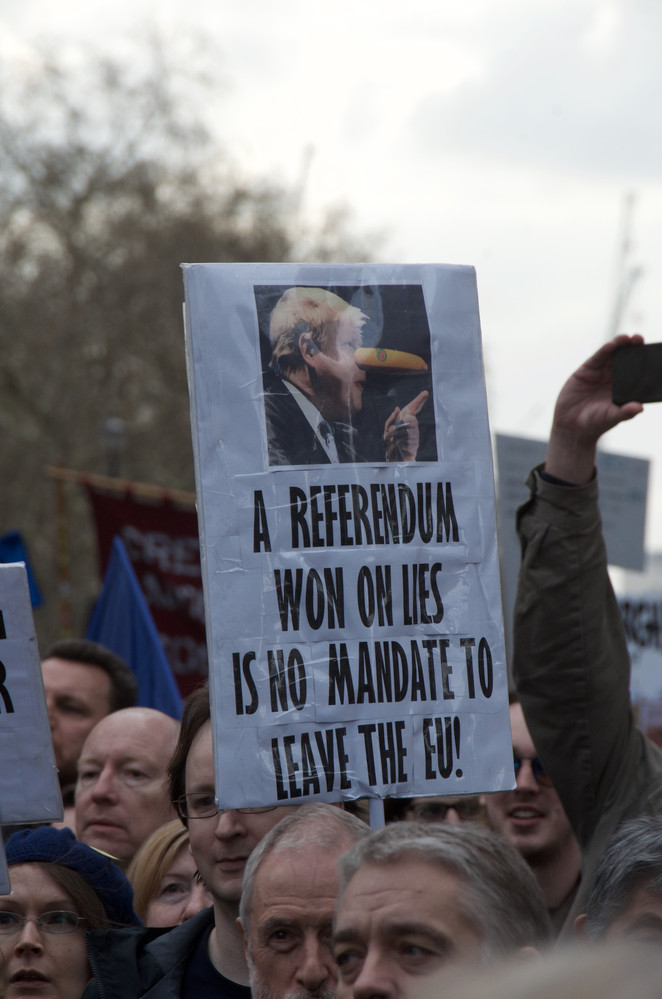 A REFERENDUM
WON ON LIES
IS NO MANDATE TO
LEAVE THE EU!